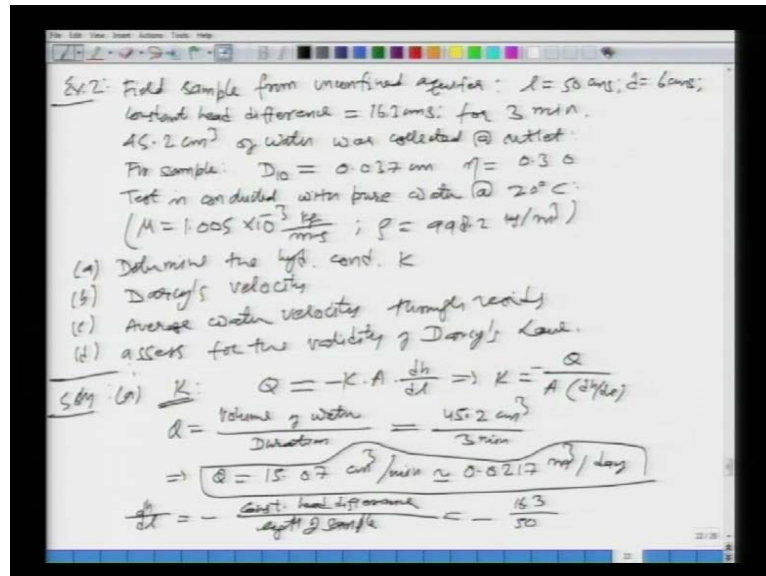 File Edit View Insert Actions Tools Help
Ex.2: Field sample from unconfined aquifer: l = 50 cms; d = 6 cms;
constant head difference = 16.3 cms; for 3 min.
45.2 cm³ of water was collected @ outlet.
For sample: D10 = 0.037 cm η = 0.30
Test is conducted with pure water @ 20°C.
(μ = 1.005 × 10⁻³ kg/ms ; ρ = 998.2 kg/m³)
(a) Determine the hyd. cond. K
(b) Darcy's velocity
(c) Average water velocity through voids
(d) assess for the validity of Darcy's Law.
Soln: (a) K: Q = -K.A. dh/dl ⇒ K = -Q / A (dh/dl)
Q = Volume of water / Duration = 45.2 cm³ / 3 min
⇒ Q = 15.07 cm³/min ≃ 0.0217 m³/day
dh/dl = - Const. head difference / length of sample = - 16.3 / 50
22/25
22